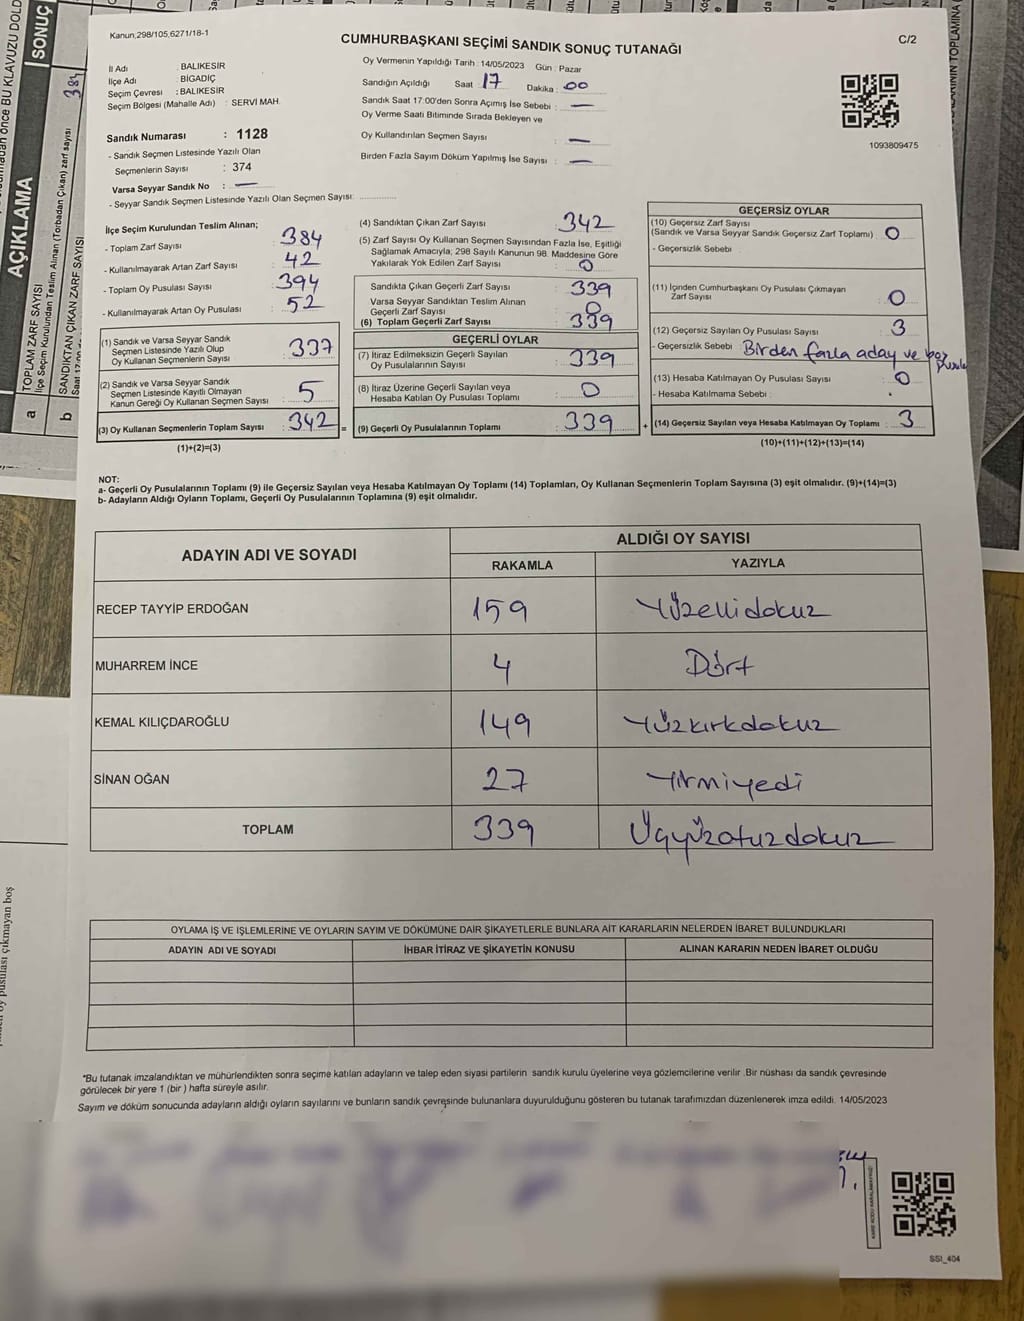 Kanun,298/105,6271/18-1
CUMHURBAŞKANI SEÇİMİ SANDIK SONUÇ TUTANAĞI
C/2
İl Adı : BALIKESİR
İlçe Adı : BİGADİÇ
Seçim Çevresi : BALIKESİR
Seçim Bölgesi (Mahalle Adı) : SERVİ MAH.
Sandık Numarası : 1128
- Sandık Seçmen Listesinde Yazılı Olan
Seçmenlerin Sayısı : 374
Varsa Seyyar Sandık No : —
- Seyyar Sandık Seçmen Listesinde Yazılı Olan Seçmen Sayısı:
Oy Vermenin Yapıldığı Tarih : 14/05/2023 Gün : Pazar
Sandığın Açıldığı Saat : 17 Dakika : 00
Sandık Saat 17:00'den Sonra Açımış İse Sebebi : —
Oy Verme Saati Bitiminde Sırada Bekleyen ve
Oy Kullandırılan Seçmen Sayısı : —
Birden Fazla Sayım Döküm Yapılmış İse Sayısı : —
1093809475
İlçe Seçim Kurulundan Teslim Alınan;
- Toplam Zarf Sayısı : 384
- Kullanılmayarak Artan Zarf Sayısı : 42
- Toplam Oy Pusulası Sayısı : 394
- Kullanılmayarak Artan Oy Pusulası : 52
(1) Sandık ve Varsa Seyyar Sandık
Seçmen Listesinde Yazılı Olup
Oy Kullanan Seçmenlerin Sayısı : 337
(2) Sandık ve Varsa Seyyar Sandık
Seçmen Listesinde Kayıtlı Olmayan
Kanun Gereği Oy Kullanan Seçmen Sayısı : 5
(3) Oy Kullanan Seçmenlerin Toplam Sayısı : 342 =
(1)+(2)=(3)
(4) Sandıktan Çıkan Zarf Sayısı : 342
(5) Zarf Sayısı Oy Kullanan Seçmen Sayısından Fazla İse, Eşitliği
Sağlamak Amacıyla; 298 Sayılı Kanunun 98. Maddesine Göre
Yakılarak Yok Edilen Zarf Sayısı : 0
Sandıkta Çıkan Geçerli Zarf Sayısı : 339
Varsa Seyyar Sandıktan Teslim Alınan
Geçerli Zarf Sayısı : 0
(6) Toplam Geçerli Zarf Sayısı : 339
GEÇERLİ OYLAR
(7) İtiraz Edilmeksizin Geçerli Sayılan
Oy Pusulalarının Sayısı : 339
(8) İtiraz Üzerine Geçerli Sayılan veya
Hesaba Katılan Oy Pusulası Toplamı : 0
(9) Geçerli Oy Pusulalarının Toplamı : 339 +
GEÇERSİZ OYLAR
(10) Geçersiz Zarf Sayısı
(Sandık ve Varsa Seyyar Sandık Geçersiz Zarf Toplamı) : 0
- Geçersizlik Sebebi
(11) İçinden Cumhurbaşkanı Oy Pusulası Çıkmayan
Zarf Sayısı : 0
(12) Geçersiz Sayılan Oy Pusulası Sayısı : 3
- Geçersizlik Sebebi : Birden fazla aday ve boş pusula
(13) Hesaba Katılmayan Oy Pusulası Sayısı : 0
- Hesaba Katılmama Sebebi :
(14) Geçersiz Sayılan veya Hesaba Katılmayan Oy Toplamı : 3
(10)+(11)+(12)+(13)=(14)
NOT:
a- Geçerli Oy Pusulalarının Toplamı (9) ile Geçersiz Sayılan veya Hesaba Katılmayan Oy Toplamı (14) Toplamları, Oy Kullanan Seçmenlerin Toplam Sayısına (3) eşit olmalıdır. (9)+(14)=(3)
b- Adayların Aldığı Oyların Toplamı, Geçerli Oy Pusulalarının Toplamına (9) eşit olmalıdır.
ADAYIN ADI VE SOYADI ALDIĞI OY SAYISI
RAKAMLA YAZIYLA
RECEP TAYYİP ERDOĞAN 159 Yüzellidokuz
MUHARREM İNCE 4 Dört
KEMAL KILIÇDAROĞLU 149 Yüzkırkdokuz
SİNAN OĞAN 27 Yirmiyedi
TOPLAM 339 Üçyüzotuzdokuz
OYLAMA İŞ VE İŞLEMLERİNE VE OYLARIN SAYIM VE DÖKÜMÜNE DAİR ŞİKAYETLERLE BUNLARA AİT KARARLARIN NELERDEN İBARET BULUNDUKLARI
ADAYIN ADI VE SOYADI İHBAR İTİRAZ VE ŞİKAYETİN KONUSU ALINAN KARARIN NEDEN İBARET OLDUĞU
*Bu tutanak imzalandıktan ve mühürlendikten sonra seçime katılan adayların ve talep eden siyasi partilerin sandık kurulu üyelerine veya gözlemcilerine verilir .Bir nüshası da sandık çevresinde
görülecek bir yere 1 (bir ) hafta süreyle asılır.
Sayım ve döküm sonucunda adayların aldığı oyların sayılarını ve bunların sandık çevresinde bulunanlara duyurulduğunu gösteren bu tutanak tarafımızdan düzenlenerek imza edildi. 14/05/2023
SSI_404
AÇIKLAMA
SONUÇ
a TOPLAM ZARF SAYISI
İlçe Seçim Kurulundan Teslim Alınan
b SANDIKTAN ÇIKAN ZARF SAYISI
(Torbadan Çıkan) zarf sayısı 384
önce BU KLAVUZU DOLD
pusulası çıkmayan boş